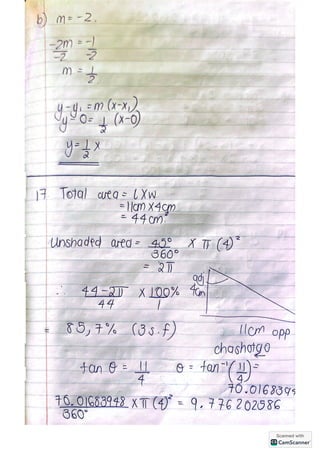 b) m = -2.
-2m = -1
-2 -2
m = 1/2
y - y₁ = m (x-x₁)
y 0 = 1/2 (x-0)
y = 1/2 x
17. Total area = l x w
= 11cm x 4cm
= 44cm²
Unshaded area = 45°/360° x π (4)²
= 2π
∴ 44-2π/44 x 100%/1
= 85,7% (3s.f)
adj
4cm
11cm opp
chashotgo
tan θ = 11/4 θ = tan⁻¹(11/4) =
70.0168394
70.01683948/360° x π (4)² = 9.776202586
Scanned with
CS CamScanner